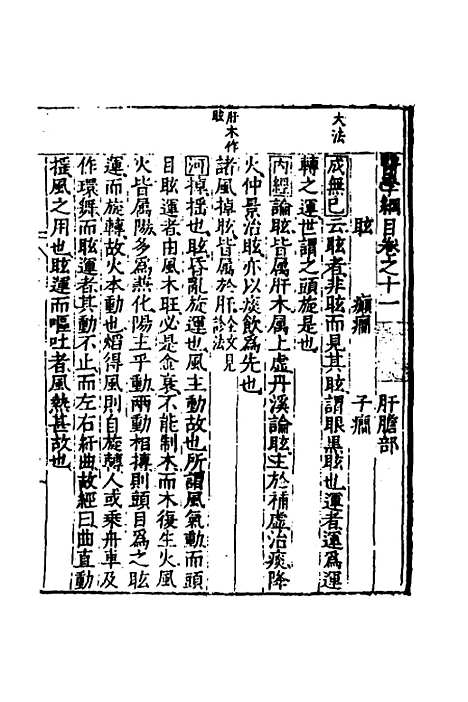 醫學綱目卷之十一
肝膽部
眩 癲癇 子癇
大法
成無已云眩者非眩而見其眩謂眼黑眩也運者運為運
轉之運世謂之頭旋是也
內經論眩皆屬肝木屬上虛丹溪論眩主於補虛治痰降
火仲景治眩亦以痰飲為先也
肝木作眩
諸風掉眩皆屬於肝全文見診法
河掉搖也眩昏亂旋運也風主動故也所謂風氣動而頭
目眩運者由風木旺必是金衰不能制木而木復生火風
火皆屬陽多為兼化陽主乎動兩動相搏則頭目為之眩
運而旋轉故火本動也焰得風則自旋轉人或乘舟車及
作環舞而眩運者其動不止而左右紆曲故經曰曲直動
搖風之用也眩運而嘔吐者風熱甚故也